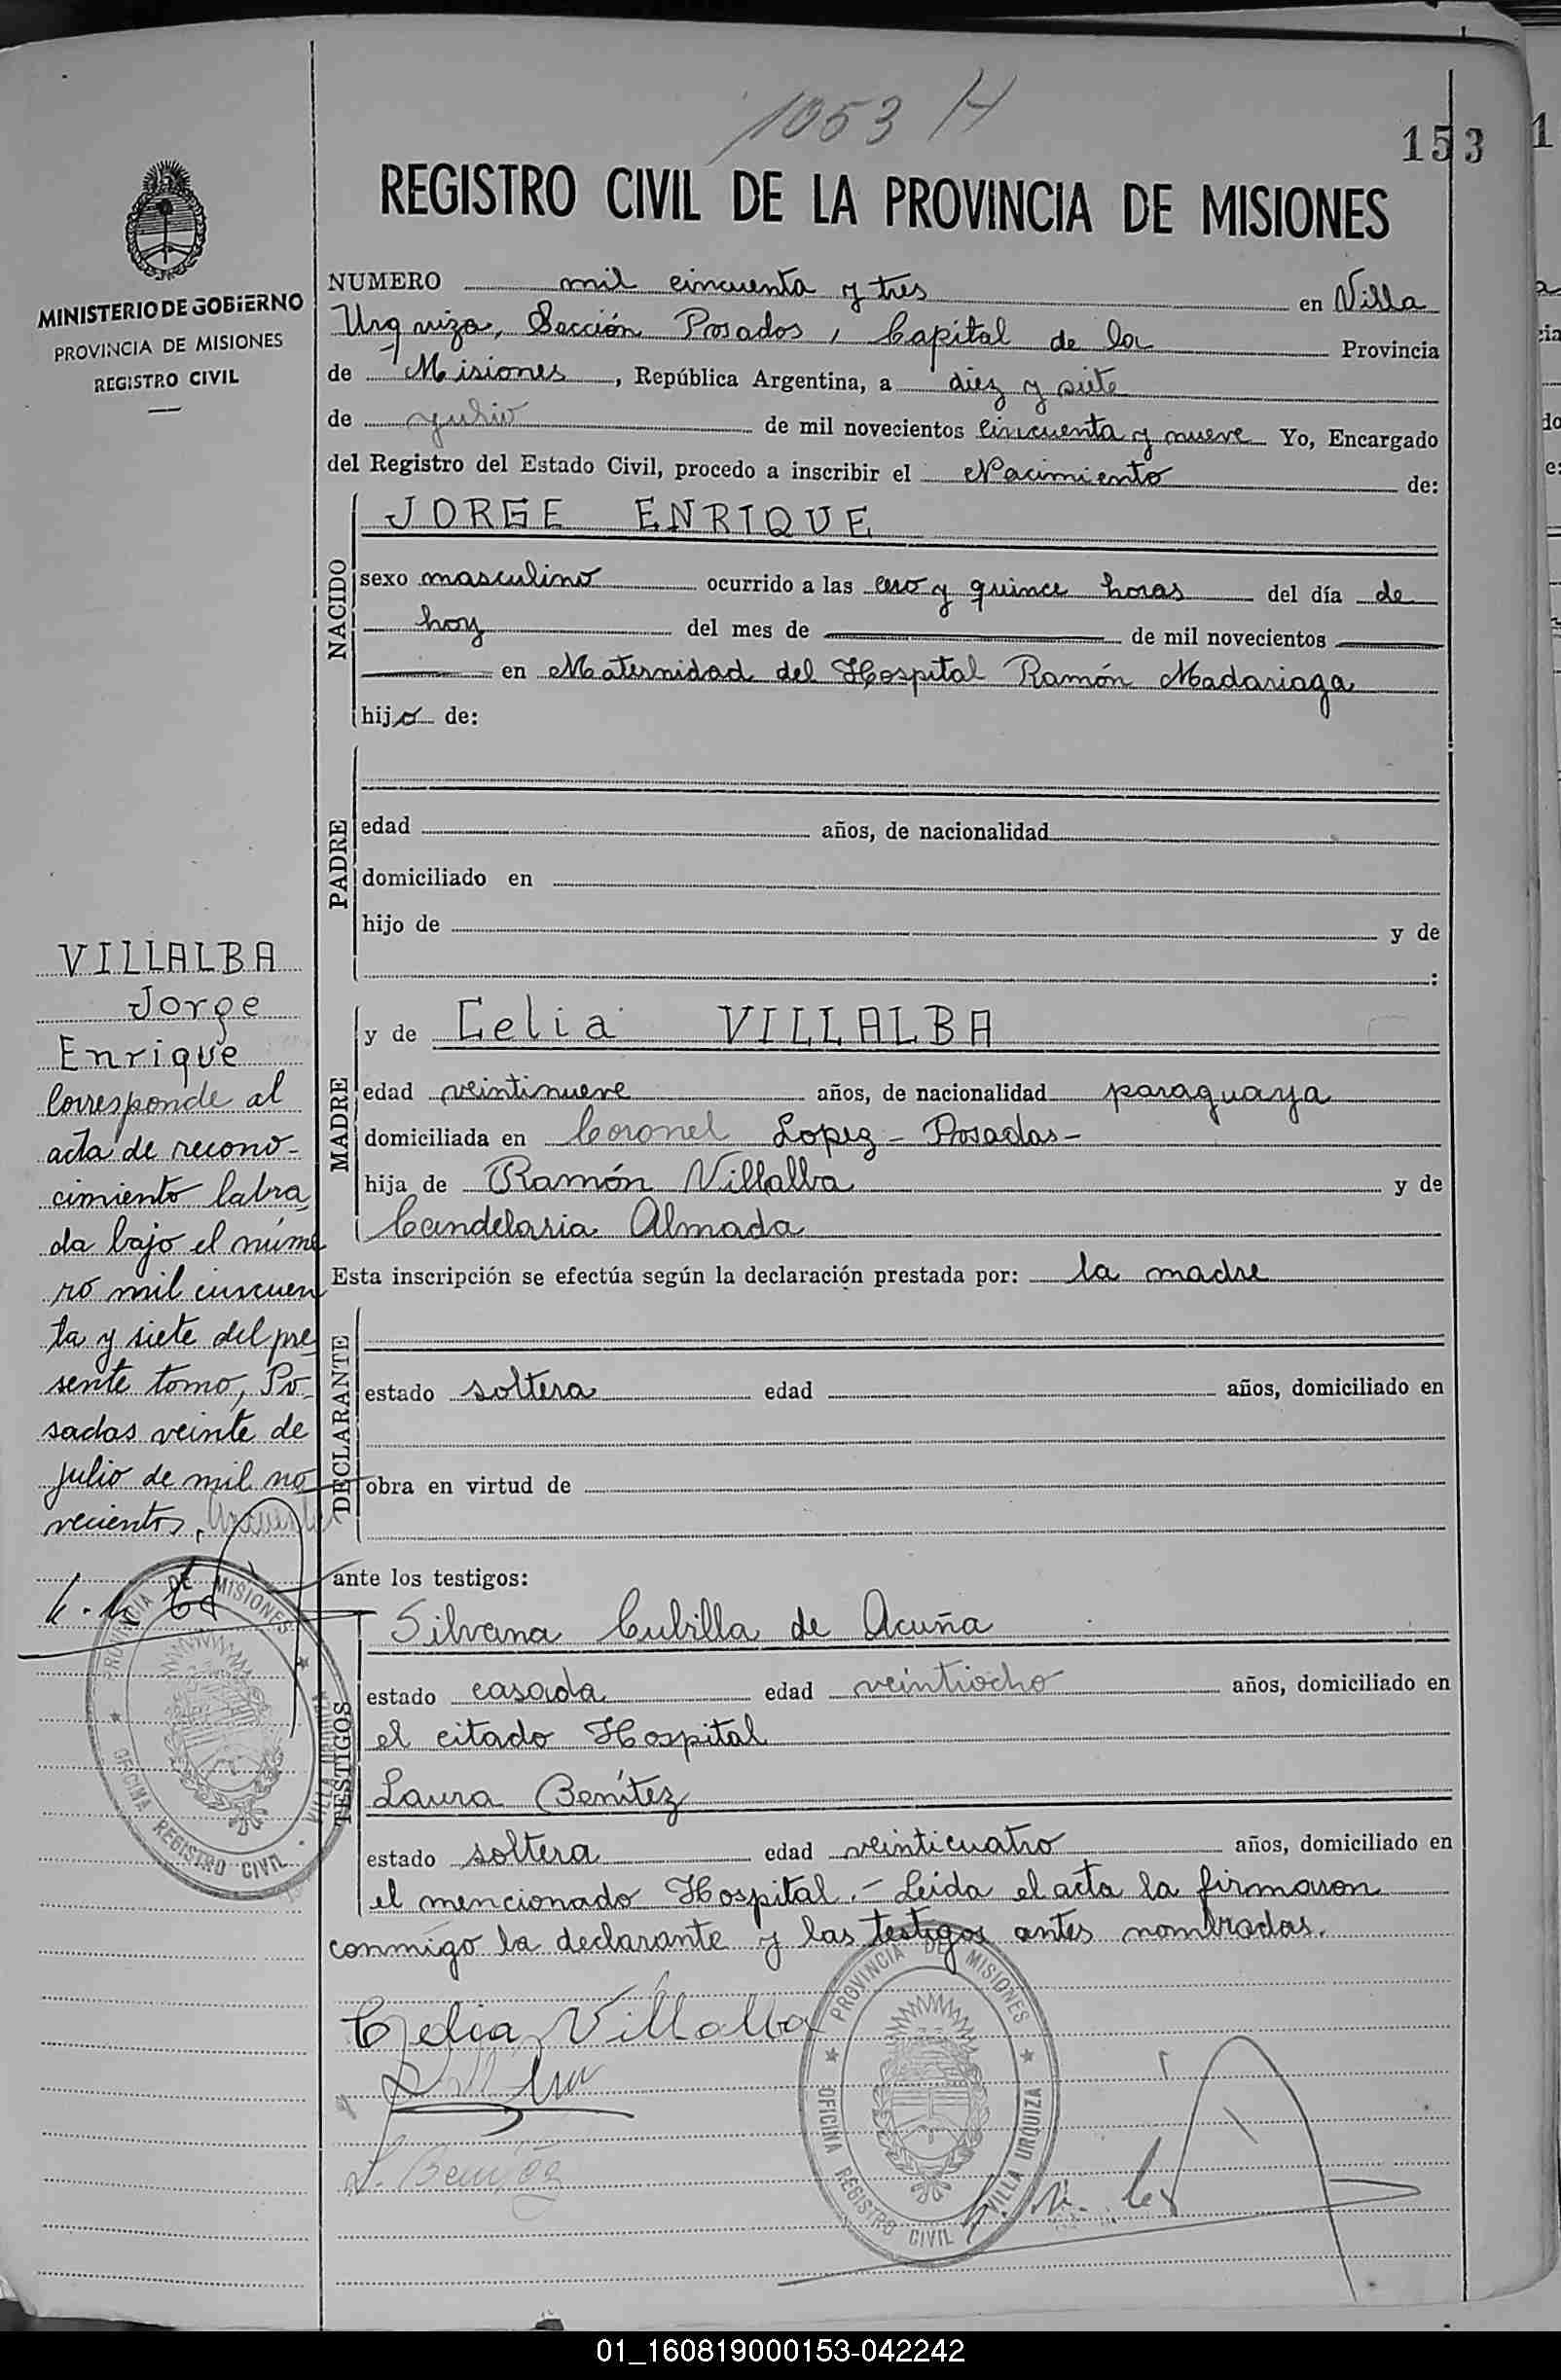 1053 H
153
REGISTRO CIVIL DE LA PROVINCIA DE MISIONES
MINISTERIO DE GOBIERNO
PROVINCIA DE MISIONES
REGISTRO CIVIL
NUMERO mil cincuenta y tres en Villa
Urquiza, Sección Posados, Capital de la Provincia
de Misiones, República Argentina, a diez y siete
de julio de mil novecientos cincuenta y nueve Yo, Encargado
del Registro del Estado Civil, procedo a inscribir el Nacimiento de:
NACIDO
JORGE ENRIQUE
sexo masculino ocurrido a las cero y quince horas del día de
hoy del mes de de mil novecientos
en Maternidad del Hospital Ramón Madariaga
hijo de:
PADRE
edad años, de nacionalidad
domiciliado en
hijo de y de
:
MADRE
y de Celia VILLALBA
edad veintinueve años, de nacionalidad paraguaya
domiciliada en Coronel Lopez - Posadas -
hija de Ramón Villalba y de
Candelaria Almada
Esta inscripción se efectúa según la declaración prestada por: la madre
DECLARANTE
estado soltera edad años, domiciliado en
obra en virtud de
ante los testigos:
TESTIGOS
Silvana Cubilla de Acuña
estado casada edad veintiocho años, domiciliado en
el citado Hospital
Laura Benítez
estado soltera edad veinticuatro años, domiciliado en
el mencionado Hospital.- Leida el acta la firmaron
conmigo la declarante y las testigos antes nombradas.
Celia Villalba
L. Benitez
PROVINCIA DE MISIONES
OFICINA REGISTRO CIVIL VILLA URQUIZA
VILLALBA
Jorge
Enrique
Corresponde al
acta de recono-
cimiento labra
da bajo el núme
ro mil cincuen
ta y siete del pre
sente tomo, Po-
sadas veinte de
julio de mil no
vecientos,
PROVINCIA DE MISIONES
OFICINA REGISTRO CIVIL
01_160819000153-042242